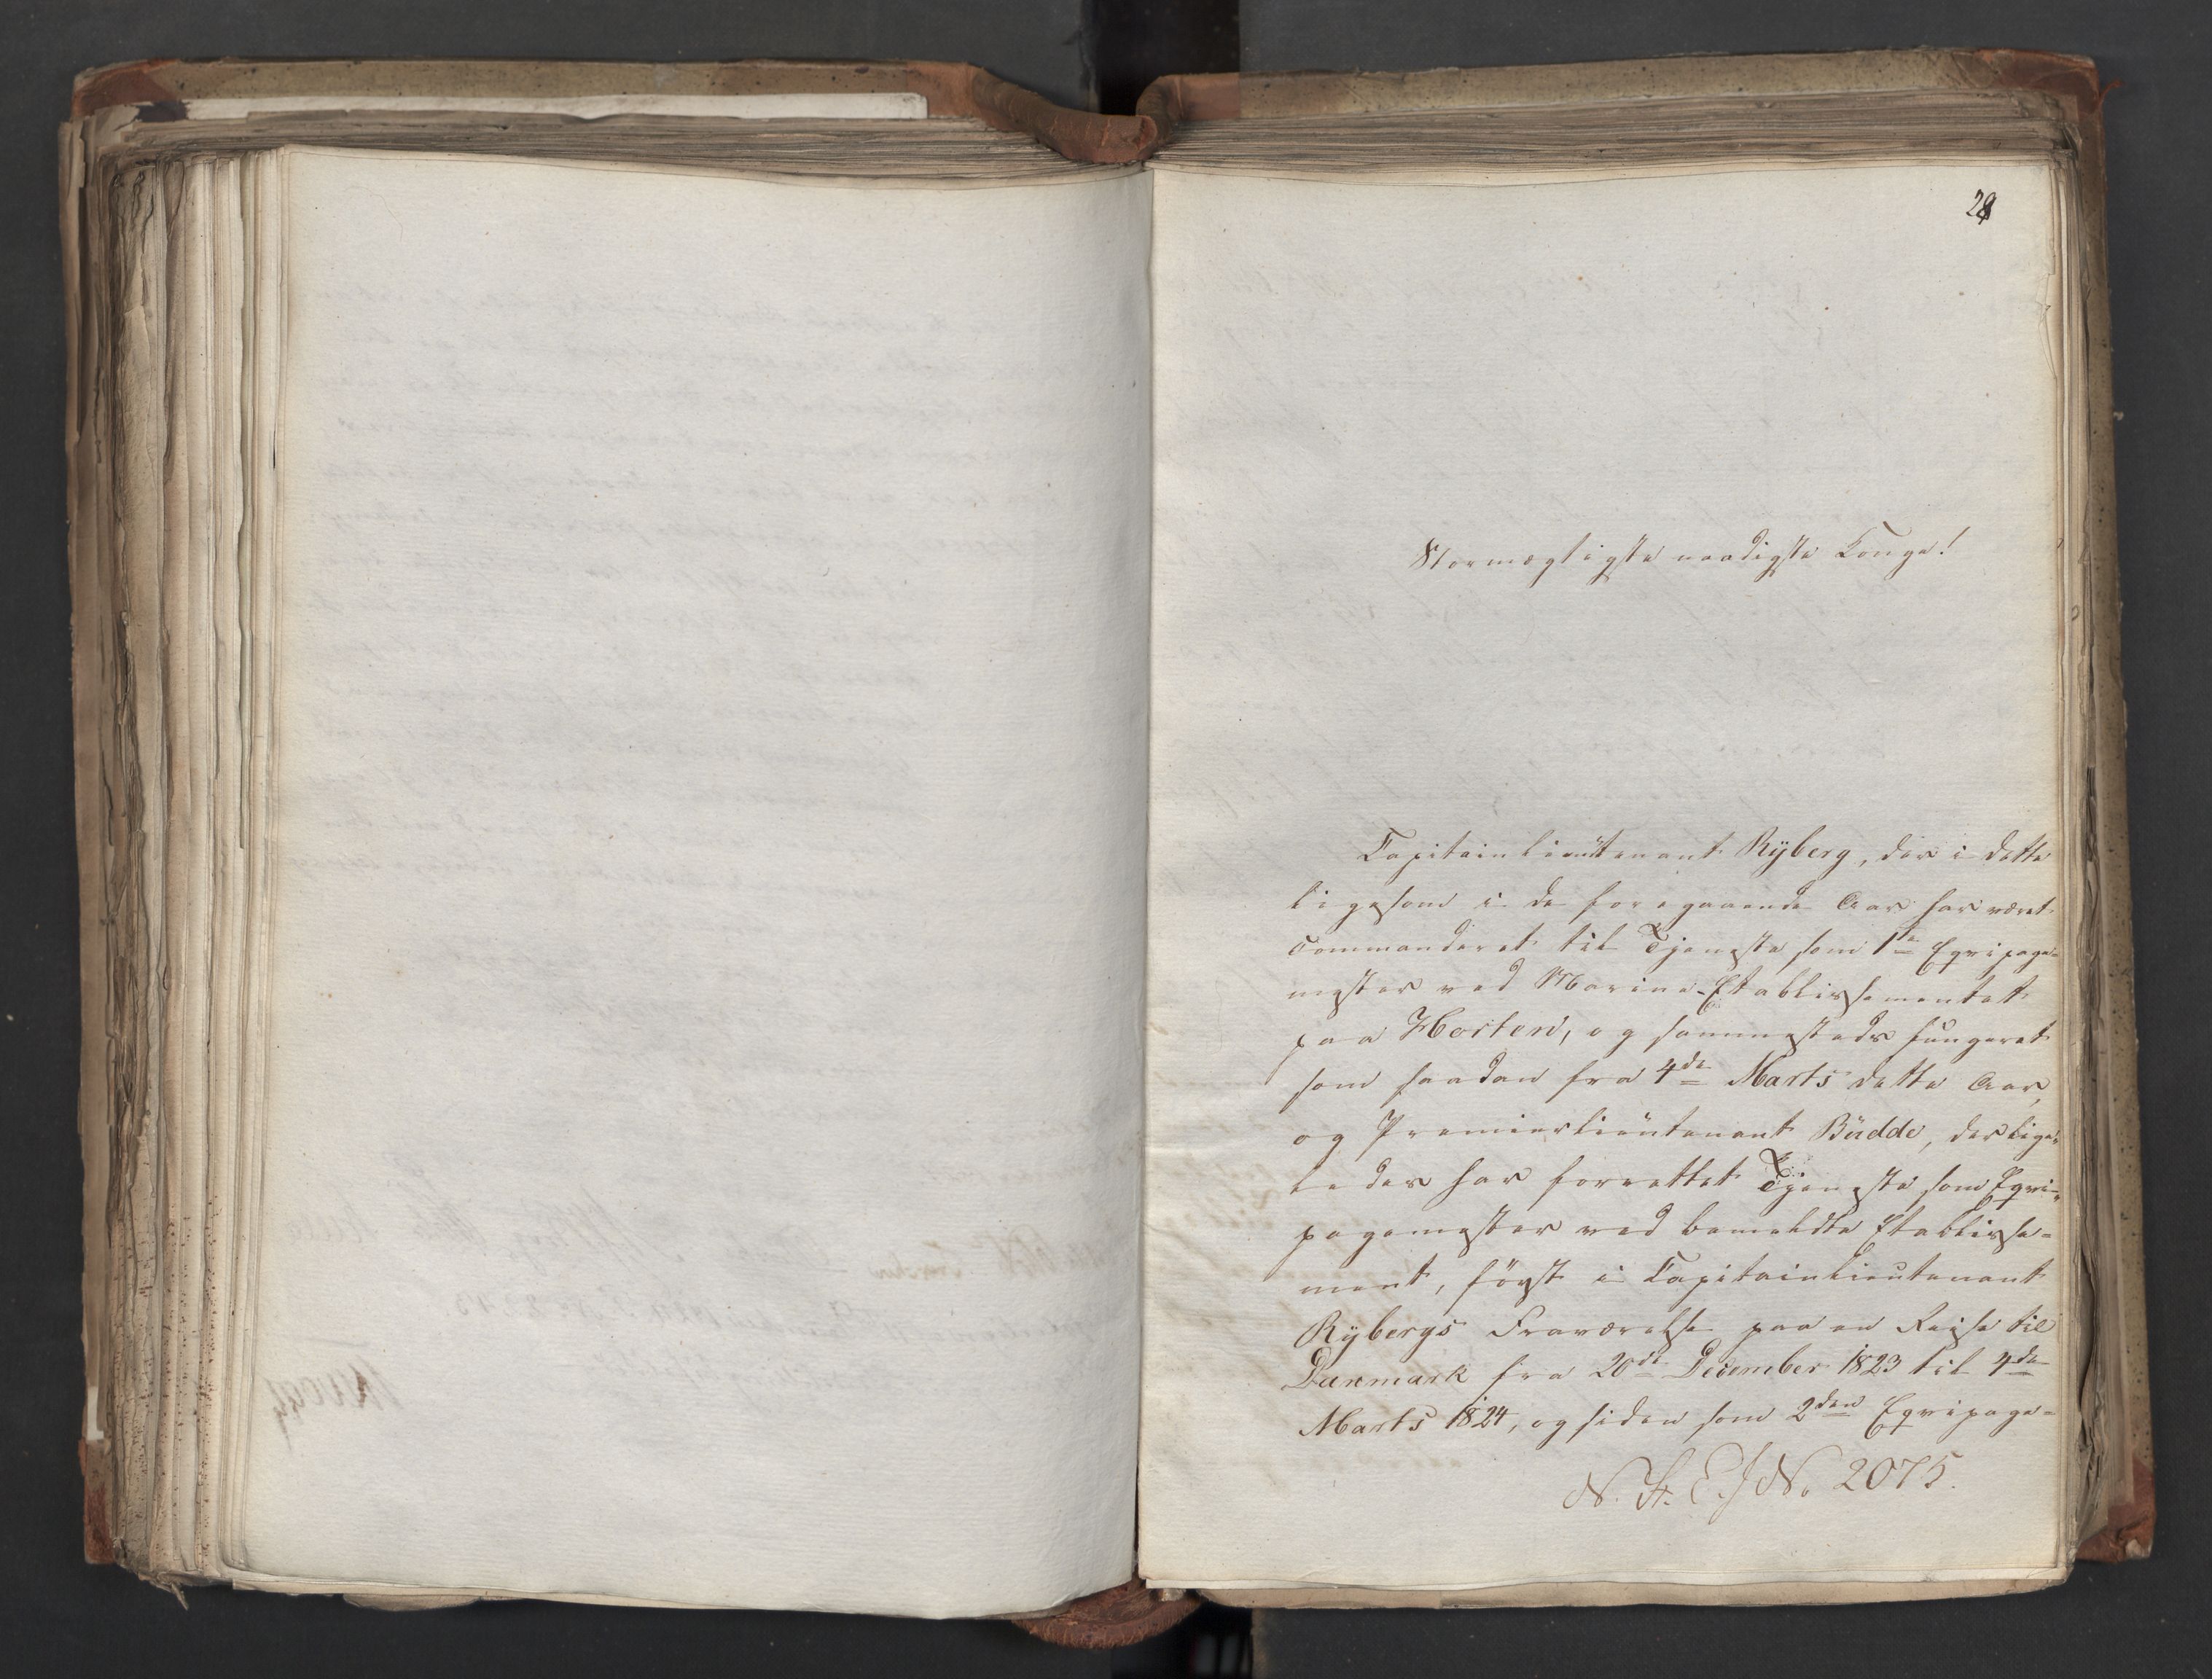 28
Stormægtigste naadigste Konge!
Capitainlieutenant Rÿberg, der i dette
ligesom i de foregaaende Aar har været
commanderet til Tjeneste som 1ste Eqvipage-
mester ved Marine-Etablissementet
paa Horten, og sammesteds fungeret
som saadan fra 4de Marts dette Aar,
og Premierlieutenant Büdde, der lige-
ledes har forrettet Tjeneste som Eqvi-
pagemester ved bemeldte Etablisse-
ment, först i Capitainlieutenant
Rÿbergs Fraværelse paa en Reise til
Danmark fra 20de December 1823 til 4de
Marts 1824, og siden som 2den Eqvipage-
N. St. E. J No. 2075.